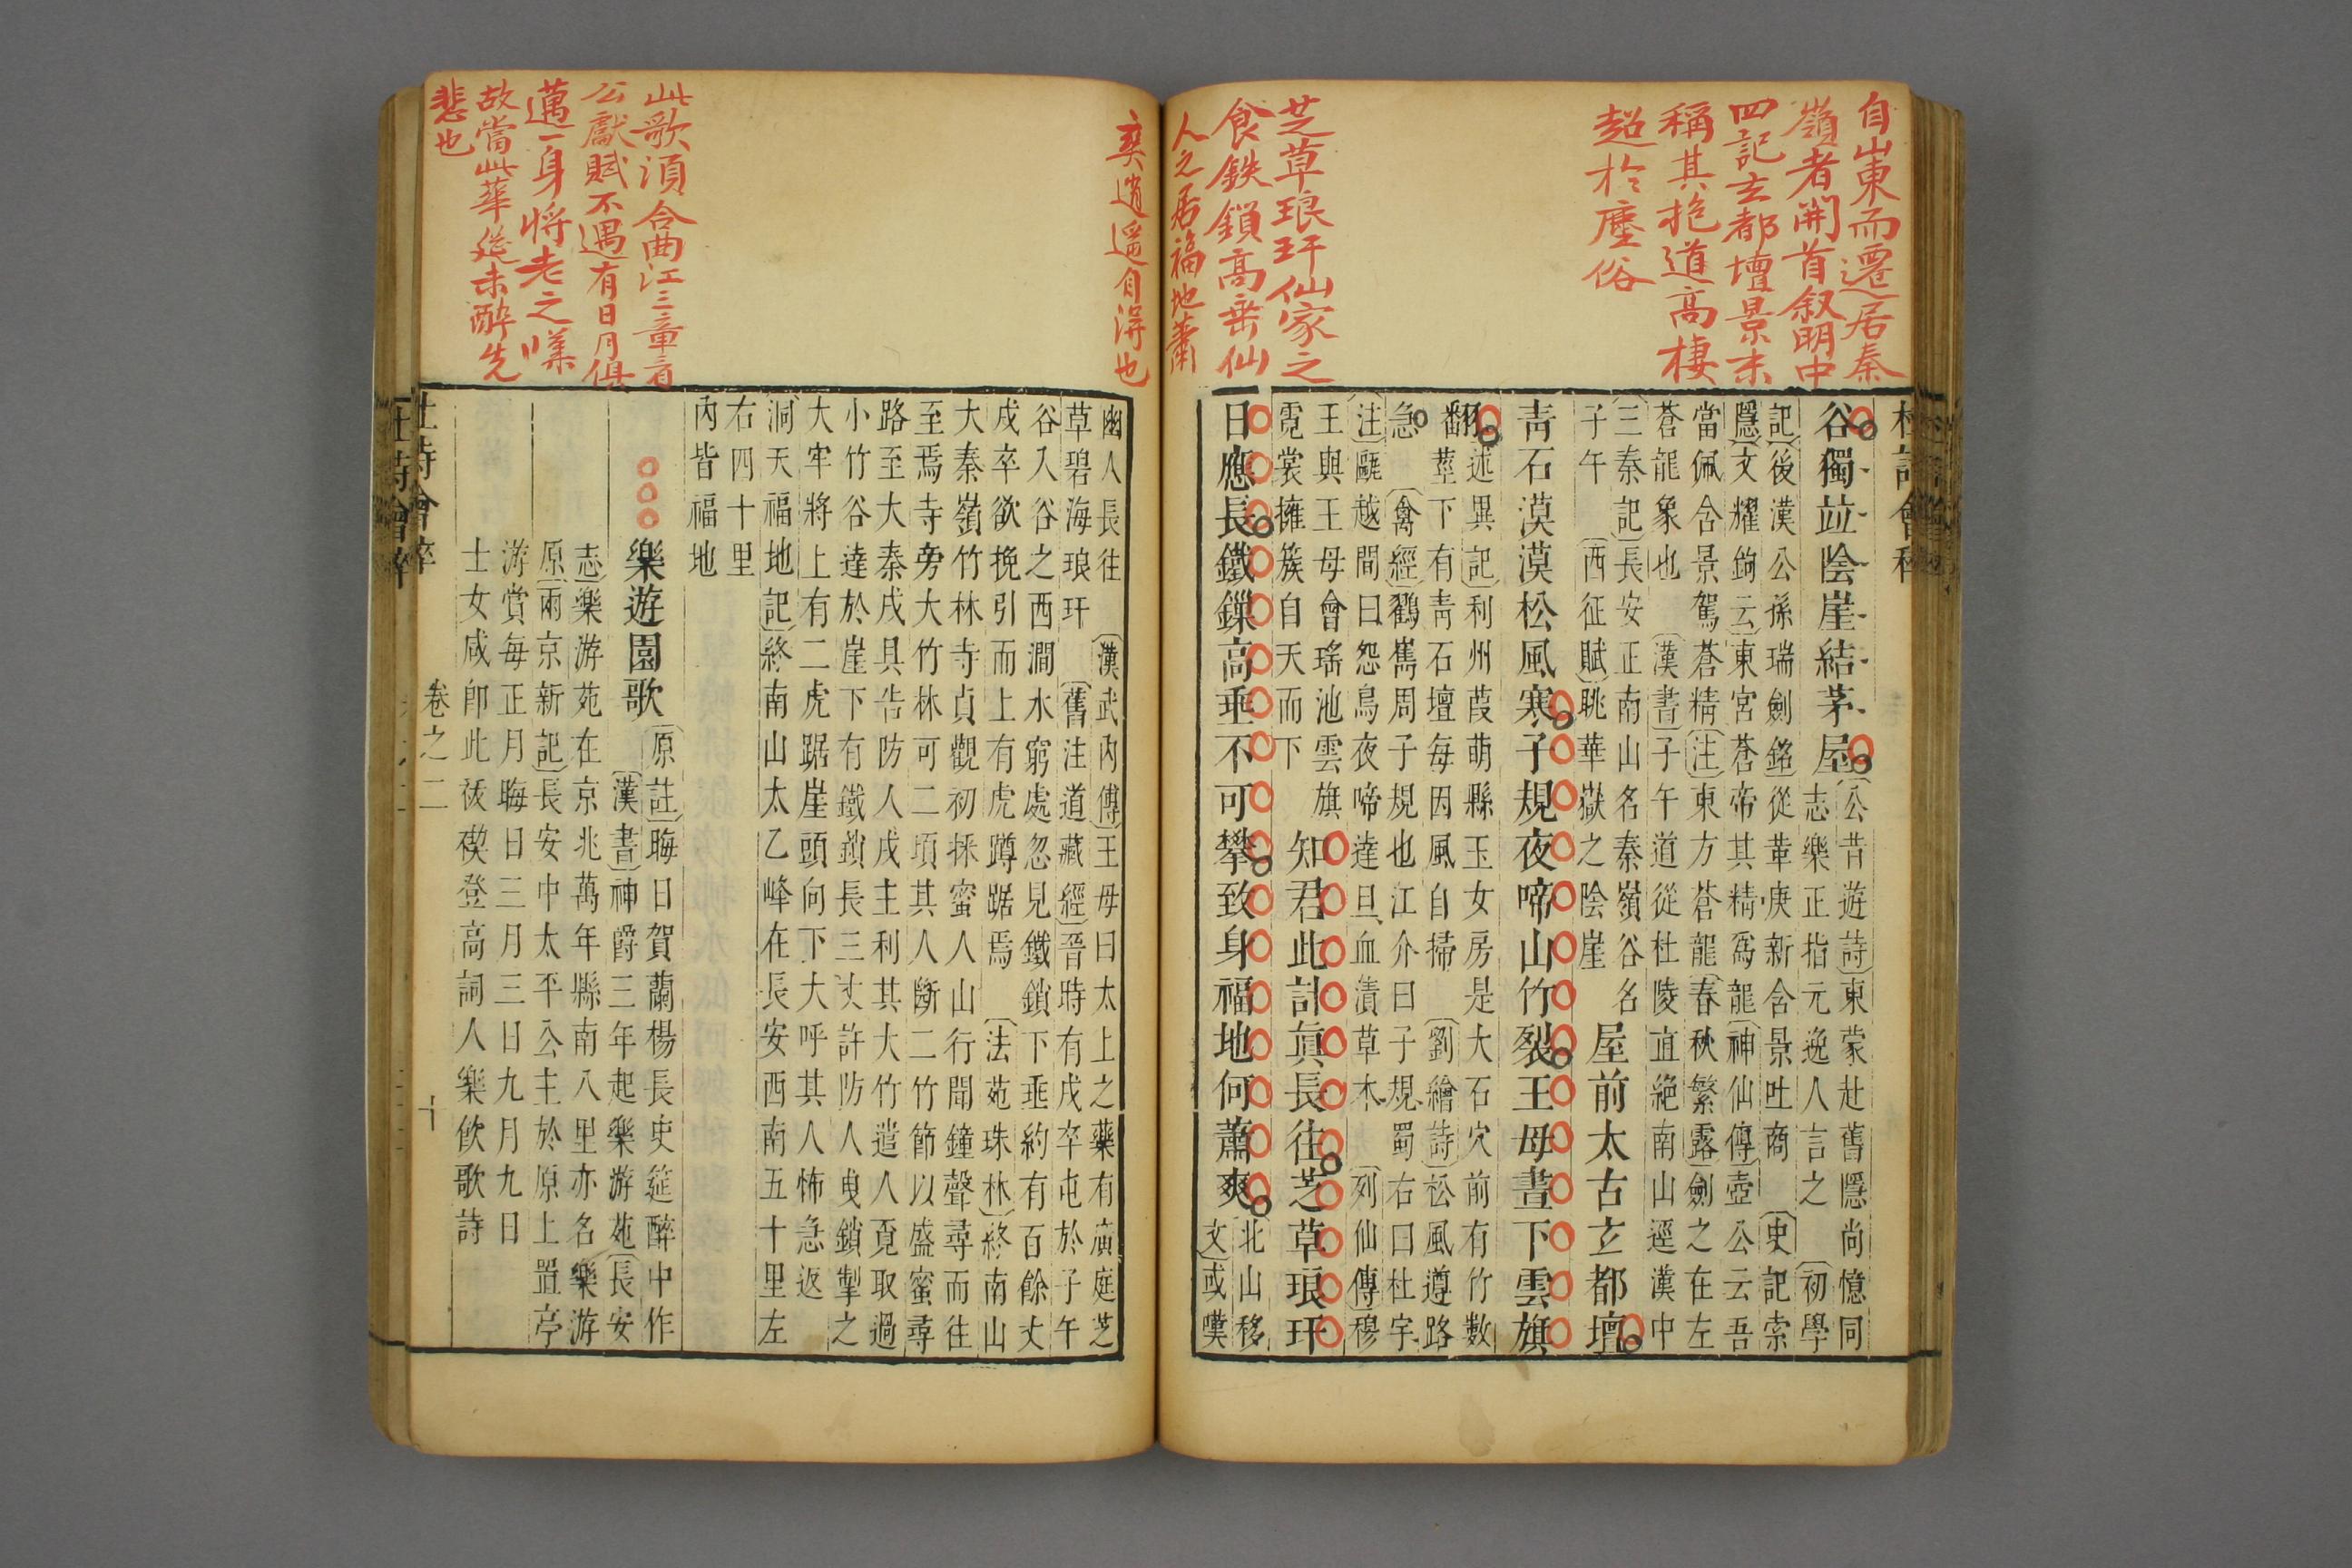 自山東而遷居秦
嶺者開首叙明中
四記玄都壇景末
稱其抱道高棲
超於塵俗
芝草琅玕仙家之
食鉄鎖高垂仙
人之居福地蕭
爽逍遥自淂也
杜詩會稡
谷獨竝陰崖結茅屋
〔公昔遊詩〕東蒙赴舊隱尚憶同
志樂正指元逸人言之 〔初學
記〕後漢公孫瑞劍銘〕從革庚新含景吐商 〔史記索
隱〕文耀鉤云〕東宮蒼帝其精爲龍〔神仙傳〕壺公云吾
當佩含景駕蒼精〔注〕東方蒼龍〔春秋繁露〕劍之在左
蒼龍象也 〔漢書〕子午道從杜陵直絕南山逕漢中
〔三秦記〕長安正南山名秦嶺谷名
子午 〔西征賦〕眺華嶽之陰崖
屋前太古玄都壇
青石漠漠松風寒子規夜啼山竹裂王母晝下雲旗
翻
〔述異記〕利州葭萌縣玉女房是大石穴前有竹數
莖下有青石壇每因風自掃 〔劉繪詩〕松風遵路
急 〔禽經〕鸛巂周子規也江介曰子規蜀右曰杜宇
〔注〕甌越間曰怨鳥夜啼達旦血漬草木 〔列仙傳〕穆
王與王母會瑤池雲旗
霓裳擁簇自天而下
知君此計眞長往芝草琅玕
日應長鐵鏁高垂不可攀致身福地何蕭爽
〔北山移
文〕或嘆
此歌湏合曲江三章看
公獻賦不遇有日月俱
邁一身將老之嘆
故當此華筵未醉先
悲也
幽人長往 〔漢武內傳〕王母曰太上之藥有廣庭芝
草碧海琅玕 〔舊注道藏經〕晉時有戍卒屯於子午
谷入谷之西澗水窮處忽見鐵鎖下垂約有百餘丈
戍卒欲挽引而上有虎蹲踞焉 〔法苑珠林〕終南山
大秦嶺竹林寺貞觀初採蜜人山行聞鐘聲尋而往
至焉寺旁大竹林可二頃其人斷二竹節以盛蜜尋
路至大秦戍具告防人戍主利其大竹遣人覓取過
小竹谷達於崖下有鐵鎖長三丈許防人曳鎖掣之
大牢將上有二虎踞崖頭向下大呼其人怖急返
〔洞天福地記〕終南山太乙峰在長安西南五十里左
右四十里
內皆福地
樂遊園歌
〔原註〕晦日賀蘭楊長史筵醉中作
〔漢書〕神爵三年起樂游苑〔長安
志〕樂游苑在京兆萬年縣南八里亦名樂游
原〔兩京新記〕長安中太平公主於原上置亭
游賞每正月晦日三月三日九月九日
士女咸卽此祓禊登高詞人樂飲歌詩
杜詩會稡
卷之二
十